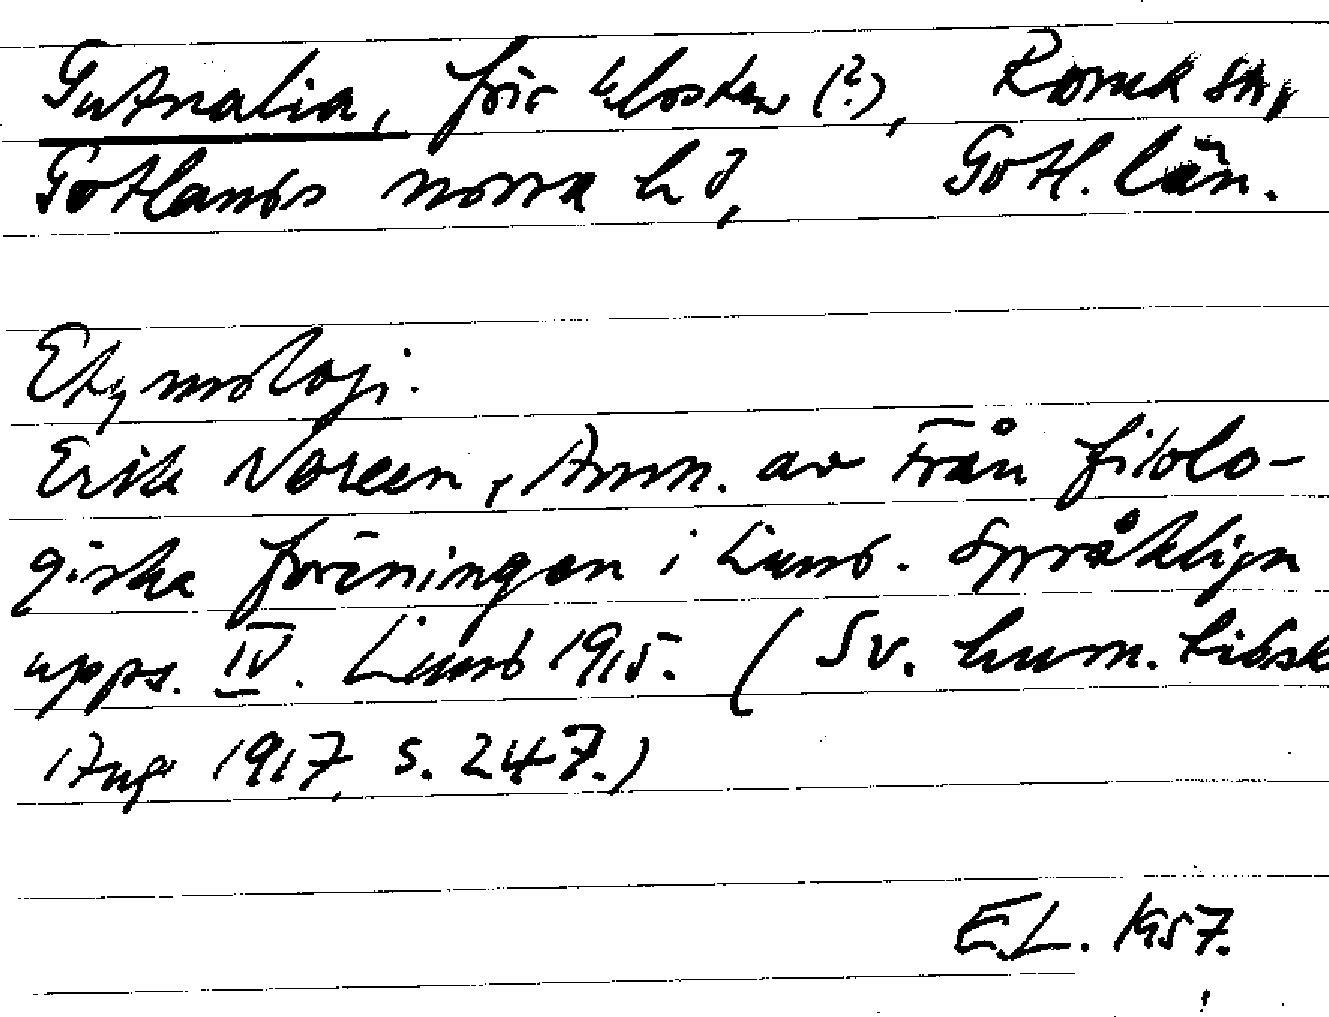 Gutnalia, förr kloster (?), Roma sn,
Gotlands norra hd, Gotl. län.
Etymologi.
Erik Noreen, Anm. av Från filolo-
giska föreningen i Lund. Språkliga
upps. IV. Lund 1915. (Sv. hum. tidskr
Aug 1917, s. 247.)
E.L. 1957.